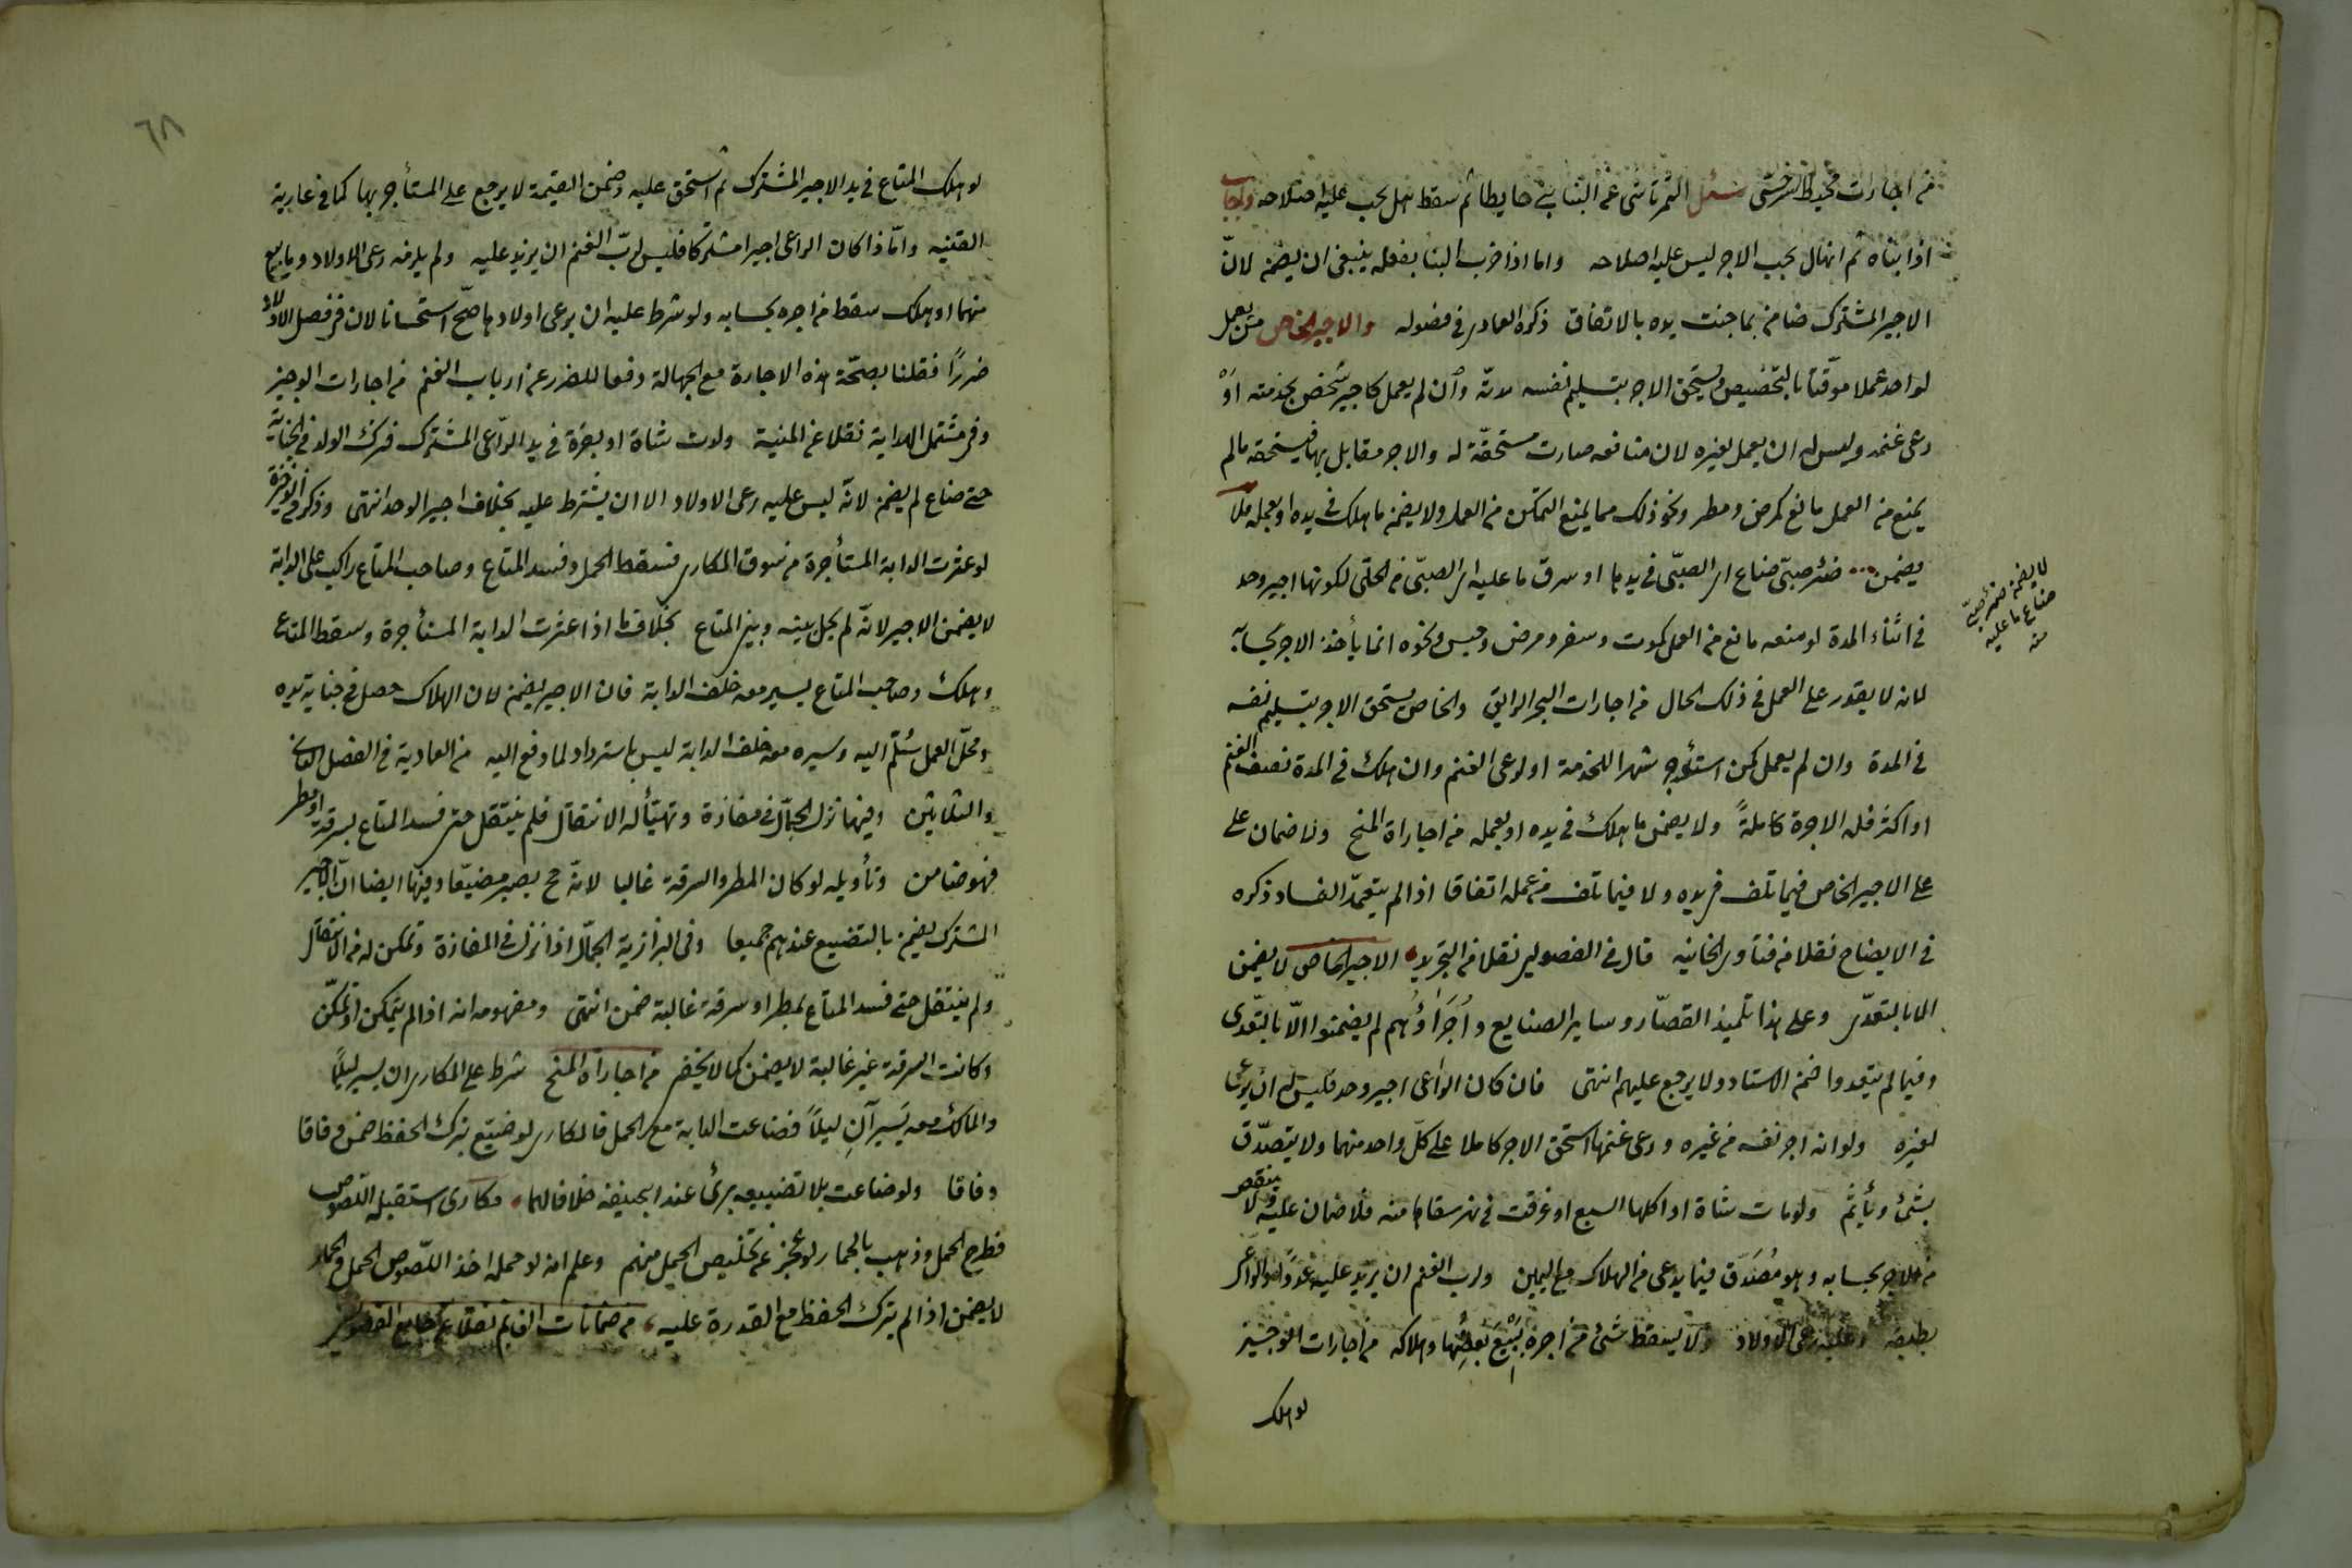 من اجارات محيط السرخسى سئل التمرتاشى عن البنا بنى حايطا ثم سقط هل يجب عليه اصلاحه واجاب
اذا بناه ثم انهال يجب الاجر ليس عليه اصلاحه واما اذا خرب البنا بفعله ينبغى ان يضمن لانّ
الاجير المشترك ضامن بما جنت يده بالاتفاق ذكره العمادى فى فصوله والاجير الخاص من يعمل
لواحد عملا موقّتا بالتخصيص ويستحق الاجر بتسليم نفسه مدته وان لم يعمل كاجير شخص بخدمته اوْ
رعى غنمه وليس له ان يعمل لغيره لان منافعه صارت مستحقّة له والاجر مقابل بها فيستحقه مالم
يمنع من العمل مانع كمرض ومطر ونحو ذلك مما يمنع التمكن من العمل ولا يضمن ما هلك فى يده او بعمله فلا
يضمن ظئر صبىّ ضاع اى الصبّى فى يدها او سرق ما عليه اى الصبّى من الحلى لكونها اجير وحد
لا يضمن ظئر صبىّ
ضاع ما عليه
منه
فى اثناء المدة لو منعه مانع من العمل كموت وسفر ومرض وحبس ونحوه انما يأخذ الاجر بحسابه
لانه لا يقدر على العمل فى ذلك الحال من اجارات البحر الرايق والخاص يستحق الاجر بتسليم نفسه
فى المدة وان لم يعمل كمن استؤجر شهرا للخدمة او لرعى الغنم وان هلك فى المدة نصف الغنم
او اكثر فله الاجرة كاملةً ولا يضمن ما هلك فى يده او بعمله من اجاراة المنح ولا ضمان على
على الاجير الخاص فيما تلف فى يده ولا فيما تلف من عمله اتفاقا اذا لم يتعمّد الفساد ذكره
فى الايضاح نقلا من فتاوى الخانيه قال فى الفصولين نقلا من التجريد الاجير الخاص لا يضمن
الا بالتعدّى وعلى هذا تلميذ القصّار وساير الصنايع واُجَرَاؤُهم لم يضمنوا الّا بالتعّدى
وفيما لم يتعدوا ضمن الاستاد ولا يرجع عليهم انتهى فان كان الراعى اجير وحد فليس له ان يرعى
لغيره ولو انه اجر نفسه من غيره ورعى غنمها استحق الاجر كاملا على كلّ واحد منهما ولا يتصدّق
بشئ ويأثم ولو مات شاة او اكلها السبع او غرقت فى نهر سقاها منه فلا ضمان عليه ولا ينقص
من الاجر بحسابه وهو مُصَدّق فيما يدعى من الهلاك مع اليمين ولرب الغنم ان يزيد عليه
يطيقه وعليه رعى الاولاد ولا يسقط شئ من اجره ببيع بعضها وهلاكه من اجارات الوجيز
لو هلك
٦٨
لو هلك المتاع فى يد الاجير المشترك ثم استحق عليه وضمن القيمة لا يرجع على المستأجر بها كما فى عارية
القنيه وامّا اذا كان الراعى اجيرا مشتركا فليس لربّ الغنم ان يزيد عليه ولم يلزمه رعى الاولاد وما بيع
منهما او هلك سقط من اجره بحسابه ولو شرط عليه ان يرعى اولادها صحّ استحسانا لان فى فصل الاولاد
ضررًا فقلنا بصحّة هذه الاجارة مع الجهالة دفعا للضرر عن ارباب الغنم من اجارات الوجيز
وفى مشتمل الهداية نقلا عن المنية ولدت شاة او بقرة فى يد الراعى المشترك فترك الولد فى الجبانة
حتى ضاع لم يضمن لانّه ليس عليه رعى الاولاد الا ان يشترط عليه بخلاف اجير الوحد انتهى وذكر فى الذخيرة
لو عثرت الدابة المستأجرة من سوق المكارى فسقط الحمل وفسد المتاع وصاحب المتاع راكب على الدابة
لا يضمن الاجير لانّه لم يخل بينه وبين المتاع بخلاف ما اذا عثرت الدابة المستأجرة وسقط المتاع
وهلك وصاحب المتاع يسير معه خلف الدابة فان الاجير يضمن لان الهلاك حصل فى جناية يده
ومحلّ العمل سُلّم اليه وسيره معه خلف الدابة ليس باسترداد لما دفع اليه من العمادية فى الفصل الثانى
والثلاثين وفيها نزل الجمّال فى مفازة وتهيّأ له الانتقال فلم ينتقل حتى فسد المتاع بسرقة او مطر
فهو ضامن وتأويله لو كان المطر والسرقة غالبا لانه ح يصير مضيّعا وفيها ايضا انّ الاجير
المشترك يضمن بالتضييع عندهم جميعا وفى البزازية الجمّال اذا نزل فى المفازة وتمكن له من الانتقال
ولم ينتقل حتى فسد المتاع بمطر او سرقة غالبة ضمن انتهى ومفهومه انه اذا لم يتمكن او تمكّن
وكانت السرقة غير غالبة لا يضمن كما لا يخفى من اجاراة المنح شرط على المكارى ان يسير ليلًا
والمالك معه يَسيرآنِ ليلًا فضاعت الدابة مع الحمل فالمكارى لو ضيّع بترك الحفظ ضمن وفاقا
وفاقا ولو ضاعت بلا تضييعه برئ عند ابيحنيفة خلافا لهما مكارى استقبله اللصوص
فطرح الحمل وذهب بالحمار لو عجز عن تخليص الحمل منهم وعلم انه لو حمله اخذ اللّصوص الحمل والحمار
لا يضمن اذا لم يترك الحفظ مع القدرة عليه من ضمانات الغانم نقلا عن جامع الفصولين